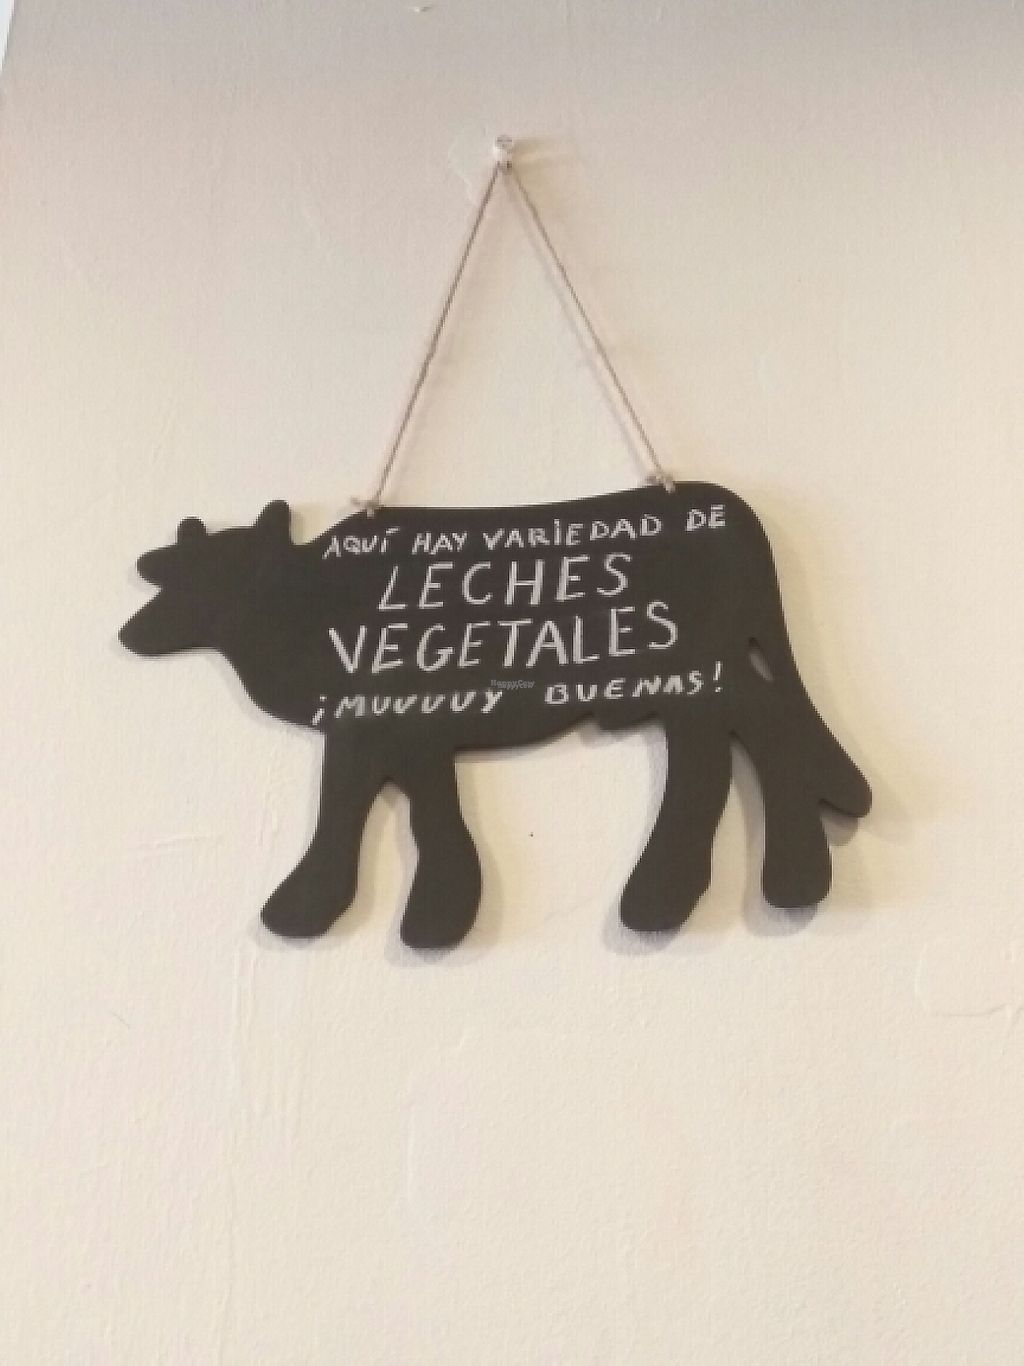 AQUÍ HAY VARIEDAD DE
LECHES
VEGETALES
¡MUUUUY BUENAS!
HappyCow